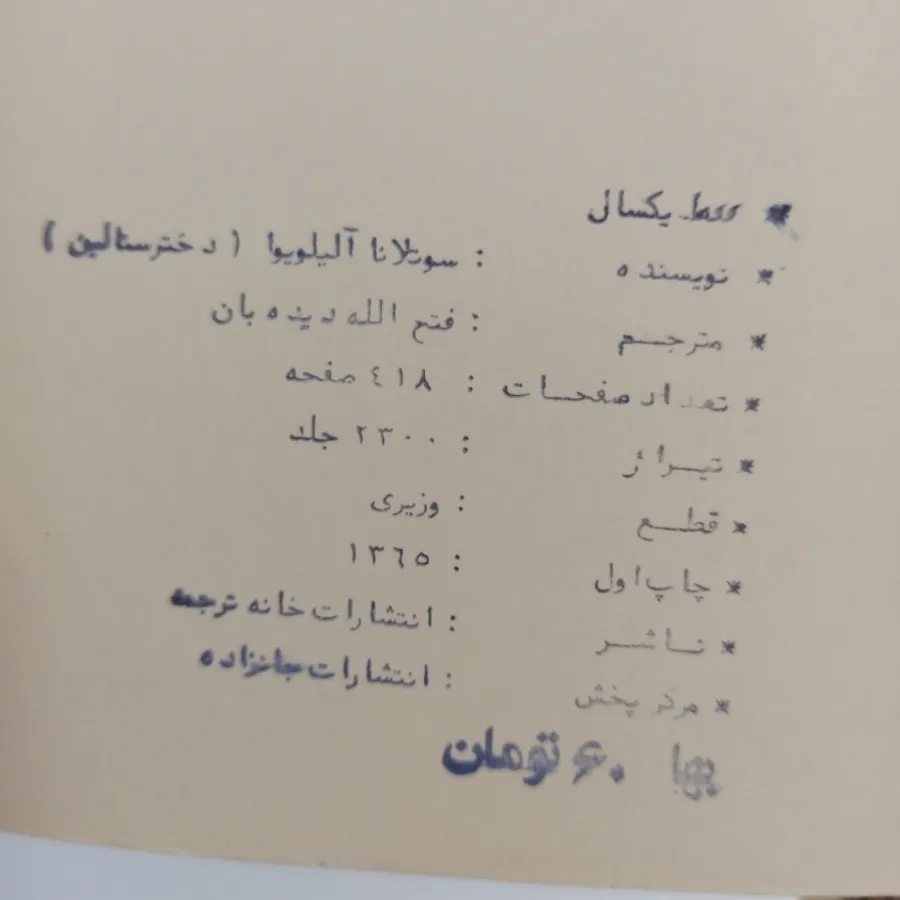 * فقط یکسال
* نویسنده : سوتلانا آلیلویوا (دختر ستالین)
* مترجم : فتح الله دیده بان
* تعداد صفحات : ٤١٨ صفحه
* تیراژ : ٢٣٠٠ جلد
* قطع : وزیری
* چاپ اول : ١٣٦٥
* ناشر : انتشارات خانه ترجمه
* مرکز پخش : انتشارات جانزاده
بها ۶۰ تومان